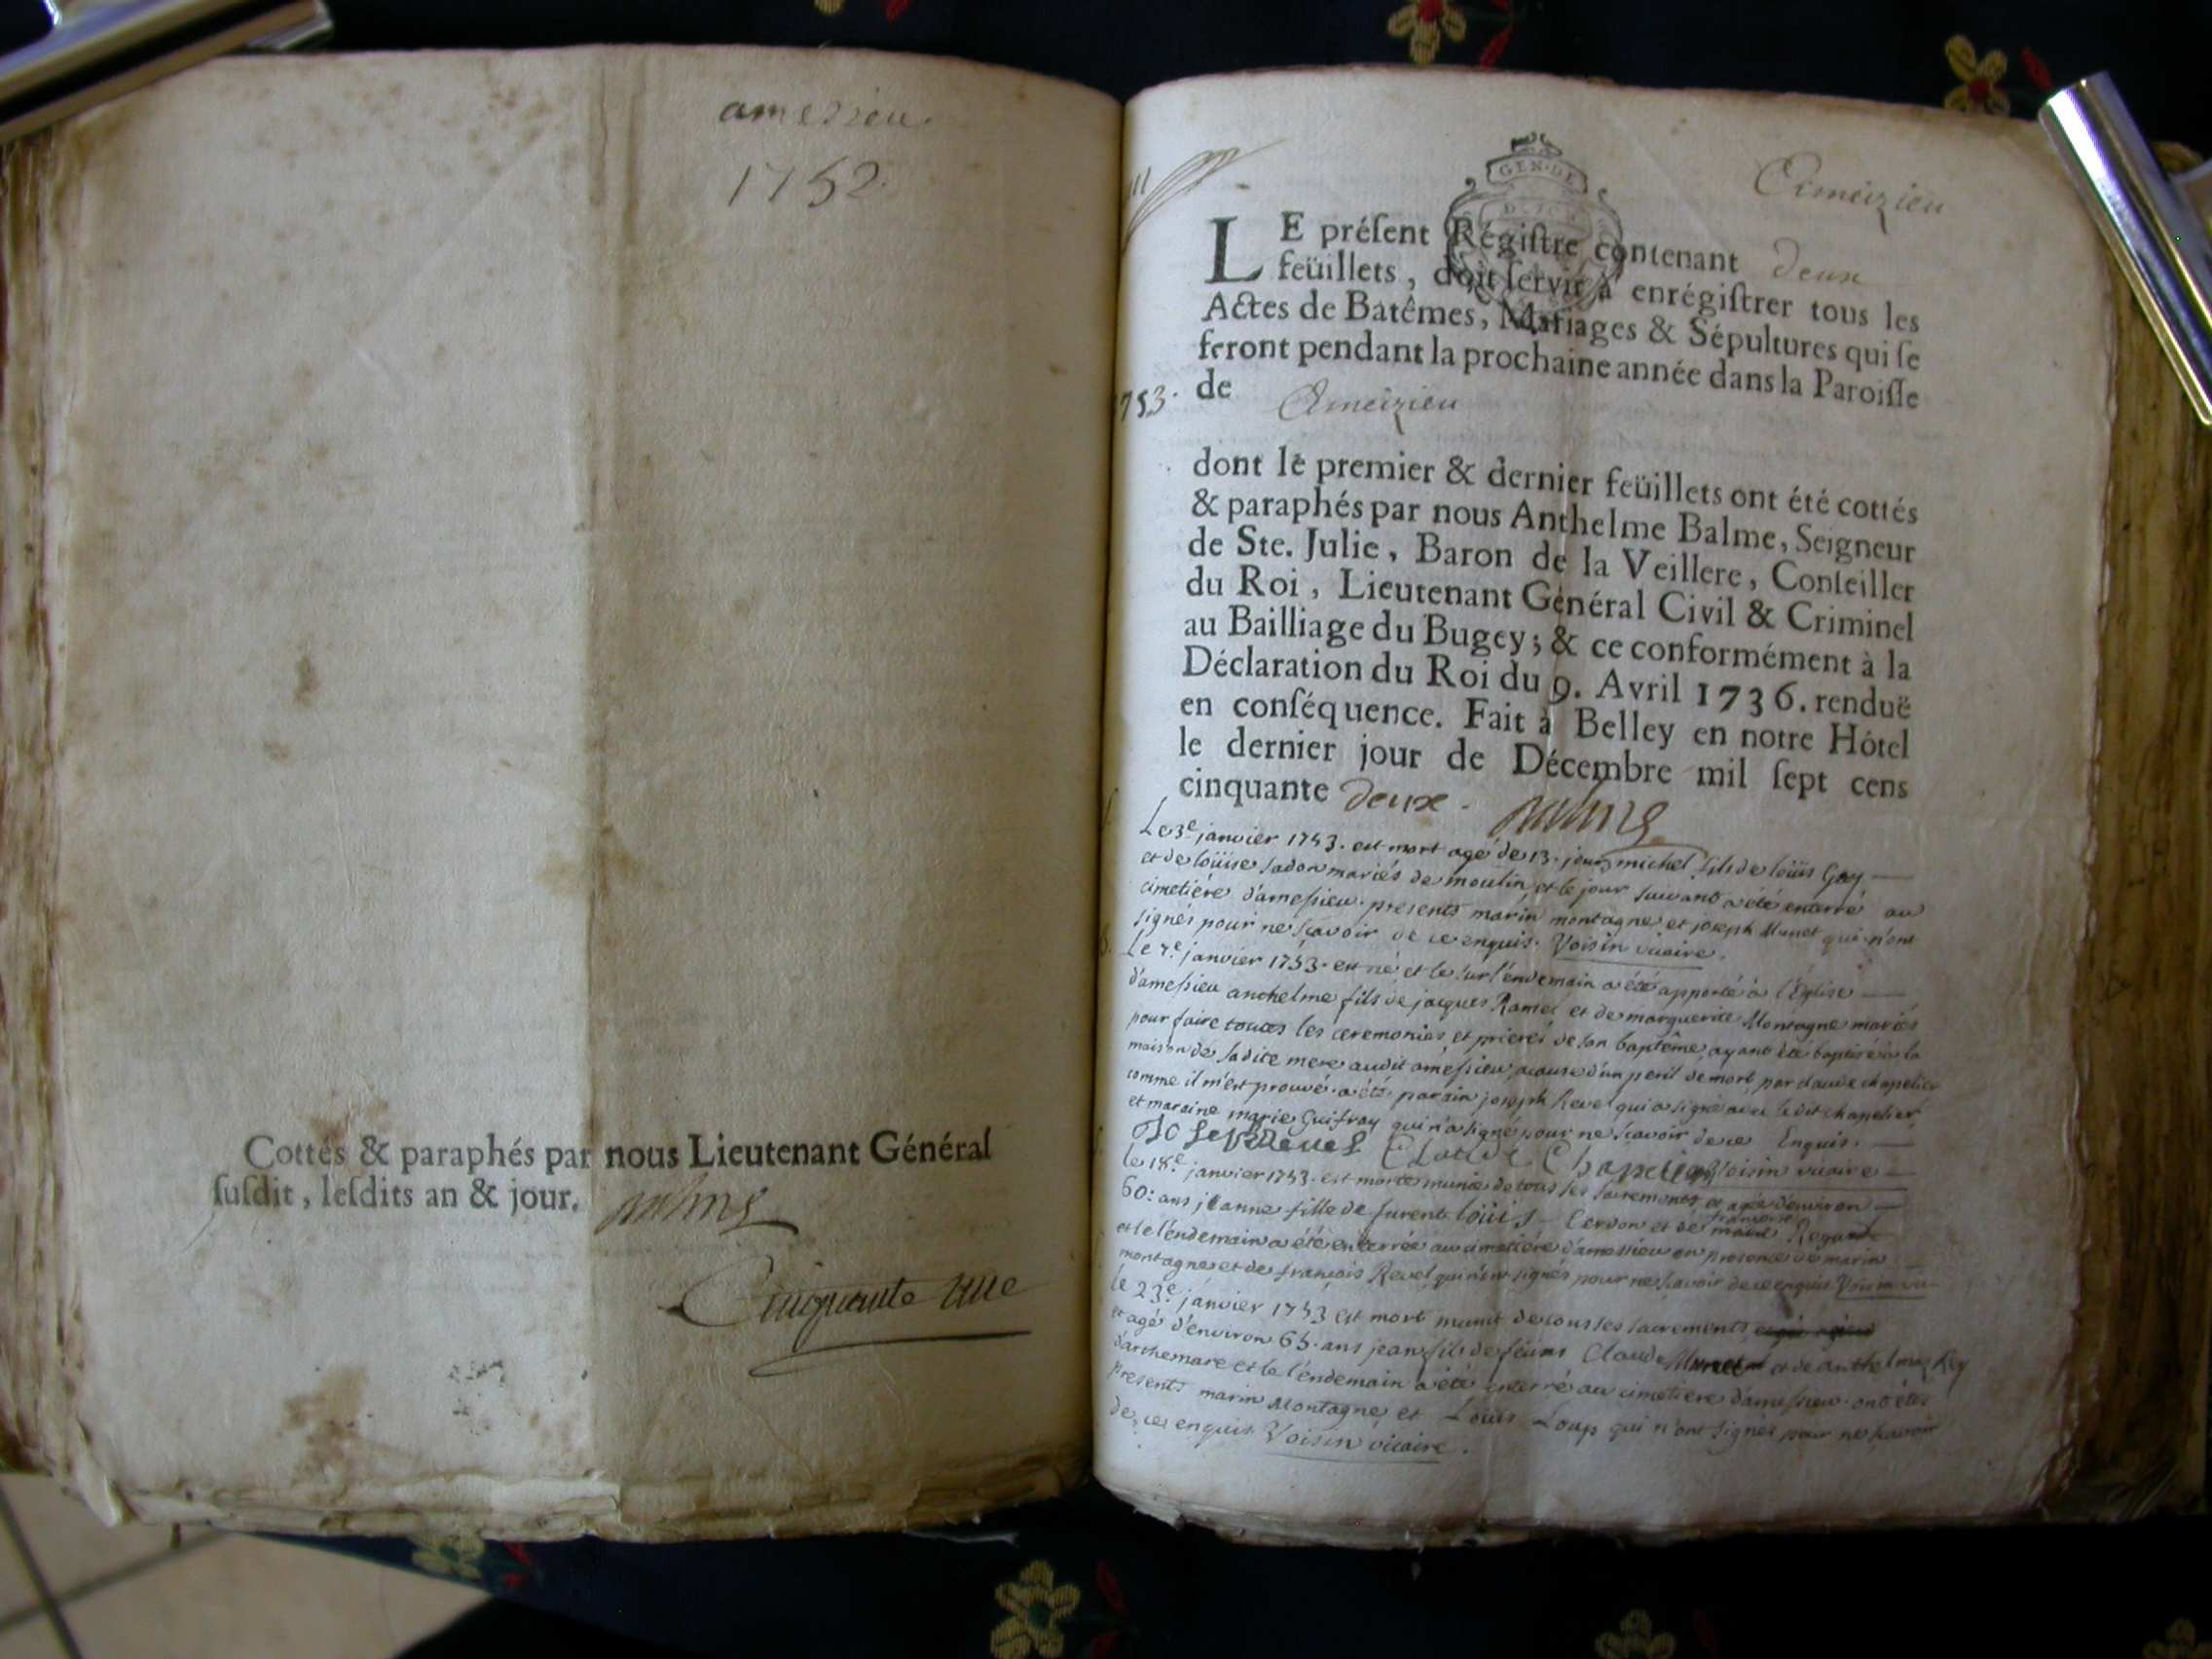 amessieu.
1752.
Cottés & paraphés par nous Lieutenant Général
ſuſdit, leſdits an & jour. Balme
Cinquante une
GEN·DE
Ameizieu
LE préſent Régiſtre contenant deux
feüillets, doit ſervir à enrégiſtrer tous les
Actes de Batêmes, Mariages & Sépultures qui ſe
feront pendant la prochaine année dans la Paroiſſe
1753. de Ameizieu
dont le premier & dernier feüillets ont été cottés
& paraphés par nous Anthelme Balme, Seigneur
de Ste. Julie, Baron de la Veillere, Conſeiller
du Roi, Lieutenant Général Civil & Criminel
au Bailliage du Bugey; & ce conformément à la
Déclaration du Roi du 9. Avril 1736. renduë
en conſéquence. Fait à Belley en notre Hôtel
le dernier jour de Décembre mil ſept cens
cinquante deux. Balme
Le 3e janvier 1753. est mort agé de 13. jours michel fils de loüis Goy
et de loüise sadon mariés de moulin, et le jour suivant a été enterré au
cimetiére d'amessieu. presents marin montagne et joseph Munet qui n'ont
signés pour ne sçavoir de ce enquis. Voisin vicaire.
Le 7e janvier 1753. est né et le surl'endemain a été apporté à l'Eglise
d'amessieu anthelme fils de jacques Ramel et de marguerite Montagne mariés
pour faire toutes les ceremonies et prieres de son baptême, ayant été baptisé à la
maison de sadite mere audit amessieu, acause d'un peril de mort, par claude chapelier
comme il m'est prouvé. a été parrain joseph Revel qui a signé avec ledit chapelier,
et maraine marie Guifray qui n'a signé pour ne sçavoir de ce Enquis.
Josep Revel Claude Chapelier Voisin vicaire
le 18e janvier 1753. est morte munie de tous les sacrements et agée d'environ
60. ans jeanne fille de furent loüis Cerdon et de françoise
et le l'endemain a été enterrée au cimetiére d'amessieu en presence de marin
montagne et de françois Revel qui n'ont signés pour ne sçavoir de ce enquis Voisin vic
le 23e janvier 1753 est mort munit de tous les sacrements
et agé d'environ 65. ans jean fils de feûrent Claude et de anthelmaz Rey
d'archemare et le l'endemain a été enterré au cimetiere d'amessieu. ont étés
presents marin Montagne et Loüis Loup qui n'ont signés pour ne sçavoir
de ce enquis Voisin vicaire.